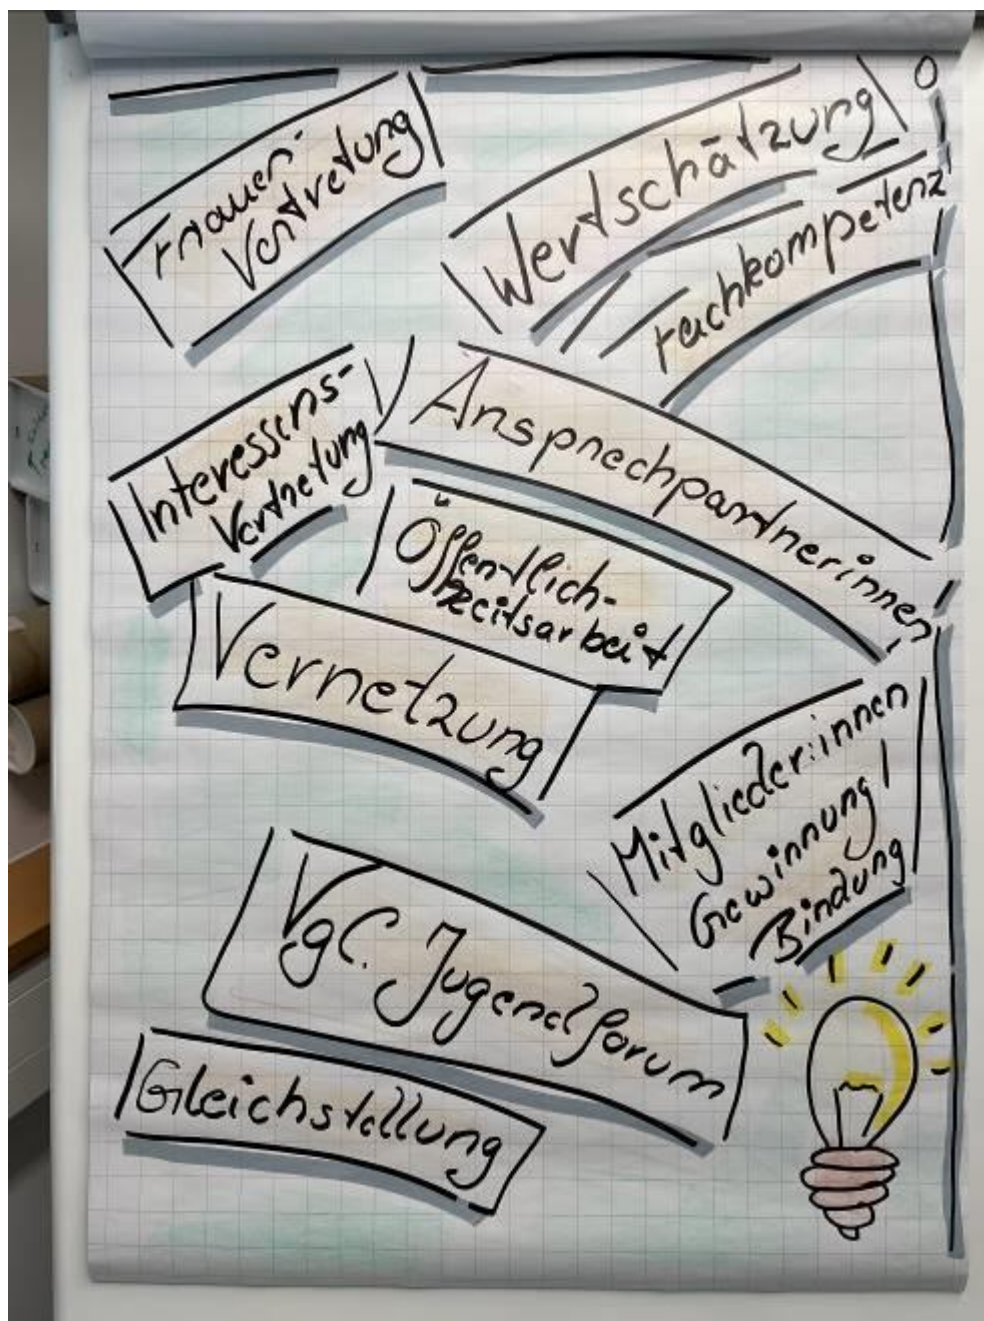 Frauen-
Vertretung
Wertschätzung
Fachkompetenz
Interessens-
Vertretung
Ansprechpartnerinnen
Öffentlich-
keitsarbeit
Vernetzung
Mitglieder:innen
Gewinnung/
Bindung
Vgl. Jugendforum
Gleichstellung